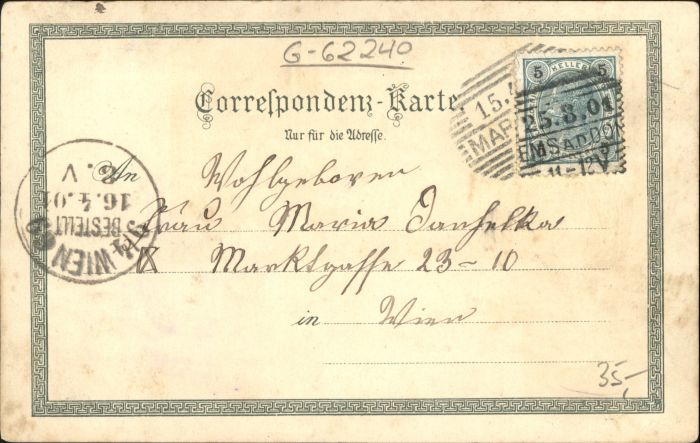 G-62240
Correspondenz-Karte.
Nur für die Adresse.
5 HELLER 5
15.4
25.3.01
11-12V
An Wohlgeboren
Frau Maria Janhelka
IX Marktgasse 23-10
in Wien
WIEN
BESTELLT
16.4.01
V
35,-